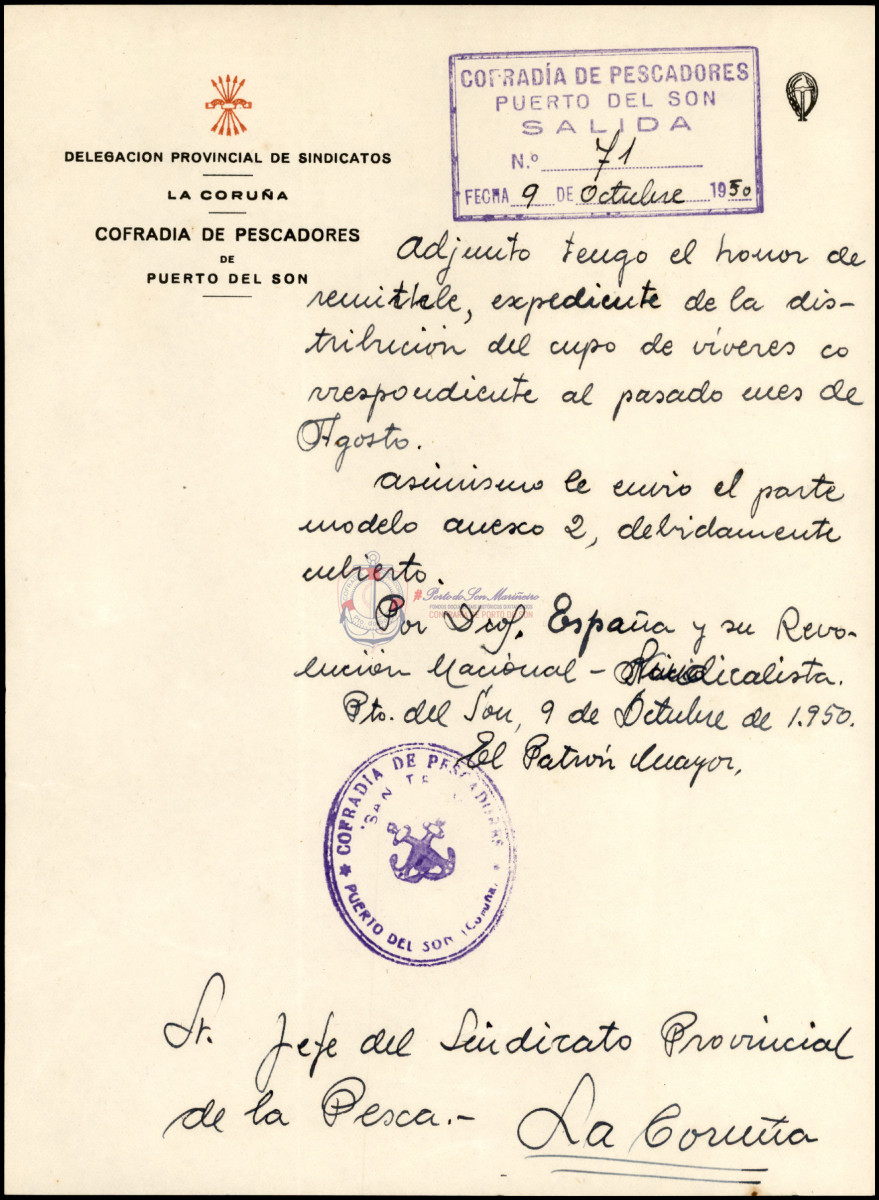 DELEGACION PROVINCIAL DE SINDICATOS
LA CORUÑA
COFRADIA DE PESCADORES
DE
PUERTO DEL SON
COFRADÍA DE PESCADORES
PUERTO DEL SON
SALIDA
N.º 71
FECHA 9 DE Octubre 1950
Adjunto tengo el honor de
remitirle, expediente de la dis-
tribución del cupo de víveres co
rrespondiente al pasado mes de
Agosto.
asimismo le envio el parte
modelo anexo 2, debidamente
cubierto.
Porto do Son Mariñeiro
Por Dios, España y su Revo-
lución Nacional-Sindicalista.
Pto. del Son, 9 de Octubre de 1.950.
El Patrón Mayor,
COFRADIA DE PESCADORES
SAN
PUERTO DEL SON (CORUÑA)
Sr. Jefe del Sindicato Provincial
de la Pesca.-
La Coruña